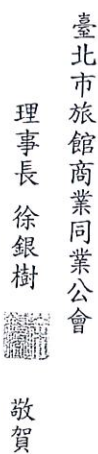 臺北市旅館商業同業公會
理事長 徐銀樹 敬賀